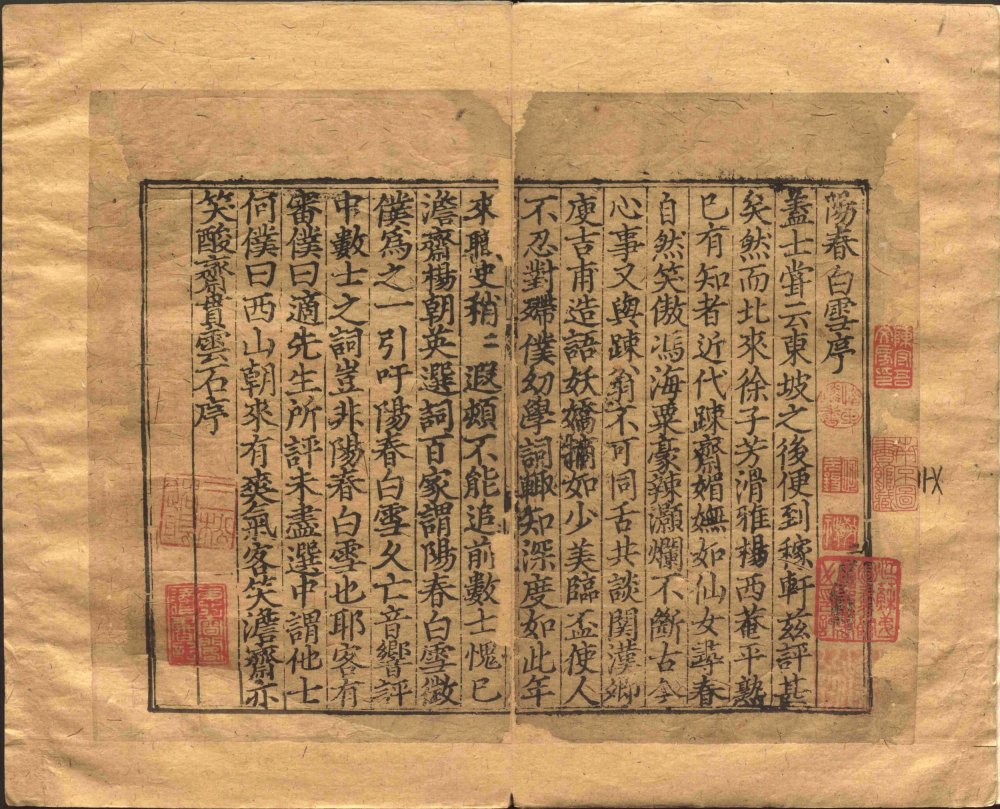 陽春白雪序
蓋士甞云東坡之後便到稼軒兹評甚
矣然而北來徐子芳滑雅楊西菴平熟
已有知者近代踈齋媚嫵如仙女尋春
自然笑傲馮海粟豪辣灝爛不斷古今
心事又與踈翁不可同舌共談関漢卿
庾古甫造語妖嬌摘如少美臨盃使人
不忍對殢僕幼學詞輙知深度如此年
來職史稍〻遐頓不能追前數士愧已
澹齋楊朝英選詞百家謂陽春白雪徵
僕爲之一引吁陽春白雪久亡音響評
中數士之詞豈非陽春白雪也耶客有
審僕曰適先生所評未盡選中謂他士
何僕曰西山朝來有爽氣客笑澹齋亦
笑酸齋貫雲石序